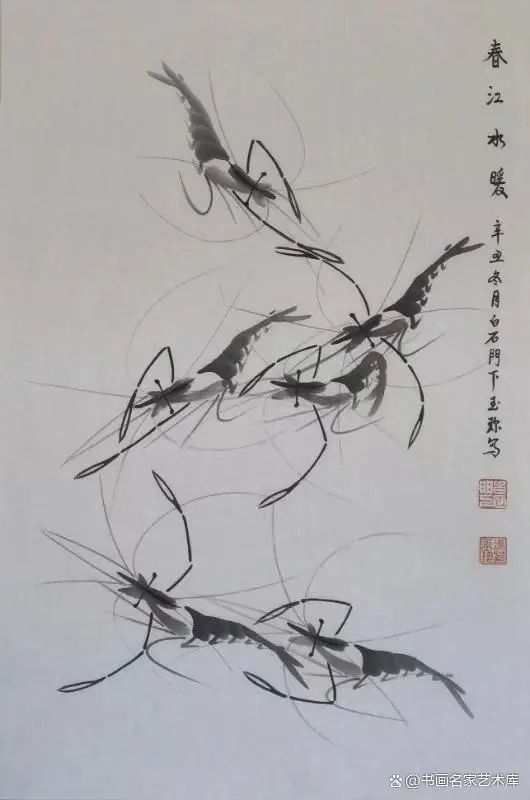 春江水暖 辛丑冬月白石門下玉珎写
@书画名家艺术库